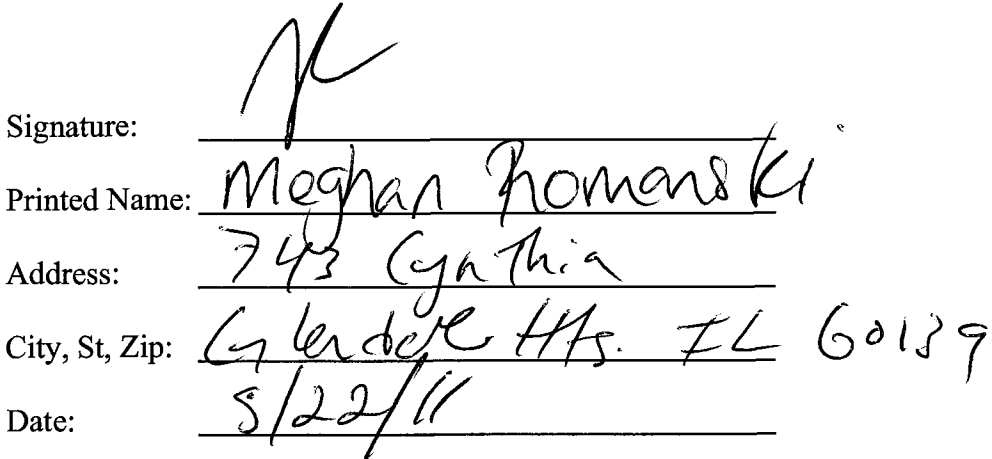 Signature:
Printed Name: Meghan Romanski
Address: 743 Cynthia
City, St, Zip: Glendale Hts. IL 60139
Date: /22/11